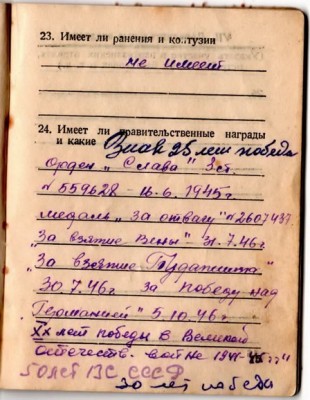 23. Имеет ли ранения и контузии
не имеет
24. Имеет ли правительственные награды
и какие Знак 25 лет победа
Орден "Слава" 3 ст.
№ 559628 - 16.6.1945 г.
медаль "За отвагу" № 2607437
"За взятие Вены" - 31.7.46 г
"За взятие Будапешта"
30.7.46 г за победу над
Германией" 5.10.46 г.
XX лет победы в Великой
отечеств. войне 1941-45 гг"
50 лет ВС СССР
30 лет победа